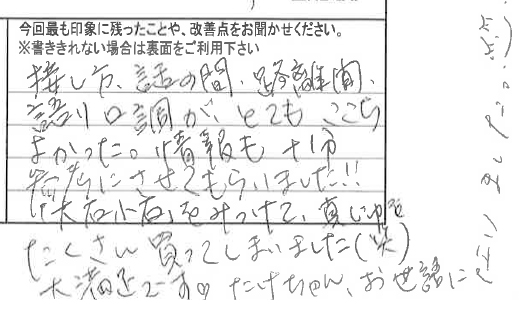 今回最も印象に残ったことや、改善点をお聞かせください。
※書ききれない場合は裏面をご利用下さい
接し方、話の間、距離間、
語り口調が、とても ここち
よかった。情報も十分
参考にさせてもらいました!!
「大石小石」をみつけて、真じゅを
たくさん買ってしまいました(笑)
大満足です♡ たけちゃん、お世話に
なりました。